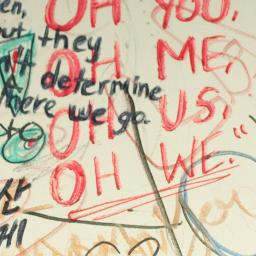 en,
but they
n't determine
where we go.
OH YOU,
OH ME,
OH US,
OH WE."
산
세